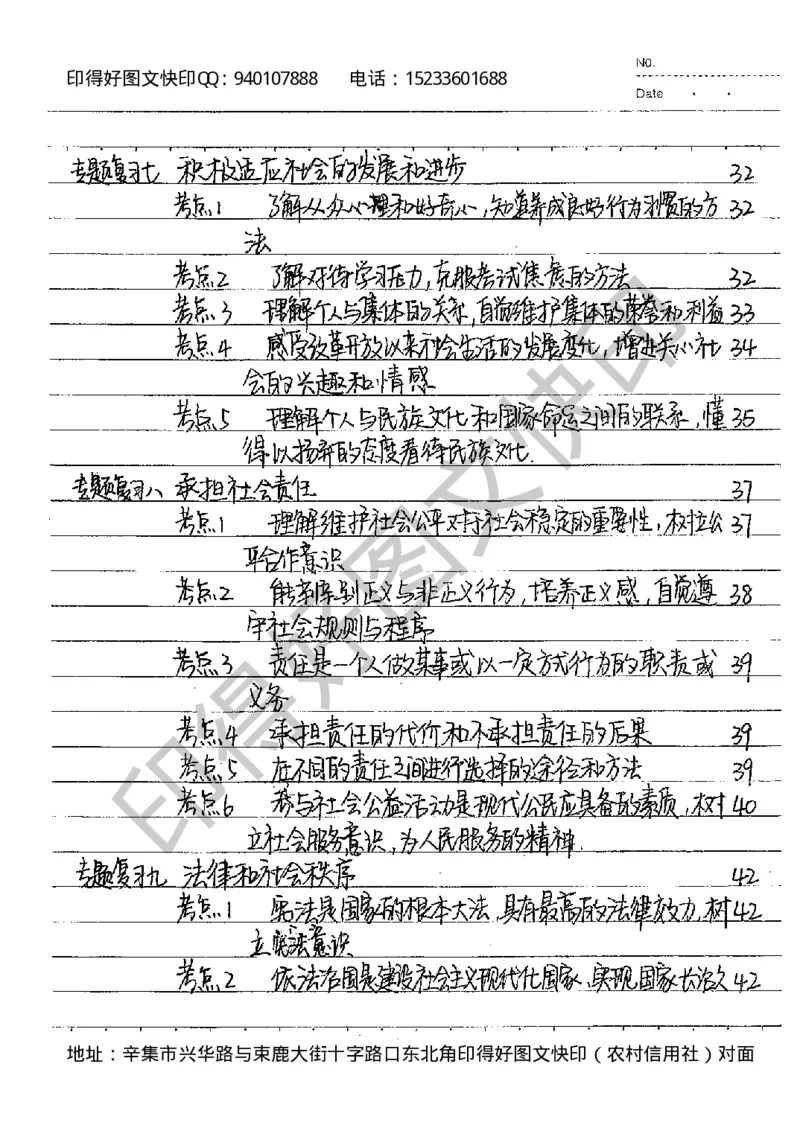 印得好图文快印QQ：940107888 电话：15233601688
No.
Date
专题复习七 积极适应社会的发展和进步 32
考点1 了解从众心理和好奇心，知道养成良好行为习惯的方 32
法
考点2 了解对待学习压力，克服考试焦虑的方法 32
考点3 理解个人与集体的关系，自觉维护集体的荣誉和利益 33
考点4 感受改革开放以来社会生活的发展变化，增进关心社 34
会的兴趣和情感
考点5 理解个人与民族文化和国家命运之间的联系，懂 35
得以扬弃的态度看待民族文化.
专题复习八 承担社会责任 37
考点1 理解维护社会公平对于社会稳定的重要性，树立公 37
平合作意识
考点2 能亲席别正义与非正义行为，培养正义感，自觉遵 38
守社会规则与程序
考点3 责任是一个人做某事或以一定方式行为的职责或 39
义务
考点4 承担责任的代价和不承担责任的后果 39
考点5 在不同的责任之间进行选择的途径和方法 39
考点6 参与社会公益活动是现代公民应具备的素质，树 40
立社会服务意识，为人民服务的精神.
专题复习九 法律和社会秩序 42
考点1 宪法是国家的根本大法，具有最高的法律效力，树 42
立宪法意识
考点2 依法治国是建设社会主义现代化国家、实现国家长治久 42
地址：辛集市兴华路与束鹿大街十字路口东北角印得好图文快印（农村信用社）对面
印得好图文快印